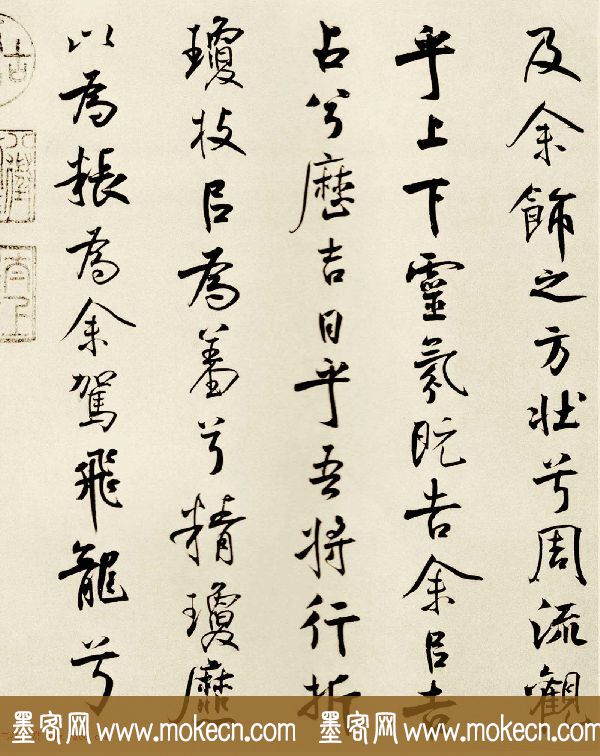 及余飾之方壯兮周流觀
乎上下靈氛既告余㠯吉
占兮歷吉日乎吾將行折
瓊枝㠯為羞兮精瓊靡
以為粻為余駕飛龍兮
墨客网 www.mokecn.com 墨客网 www.mokecn.com